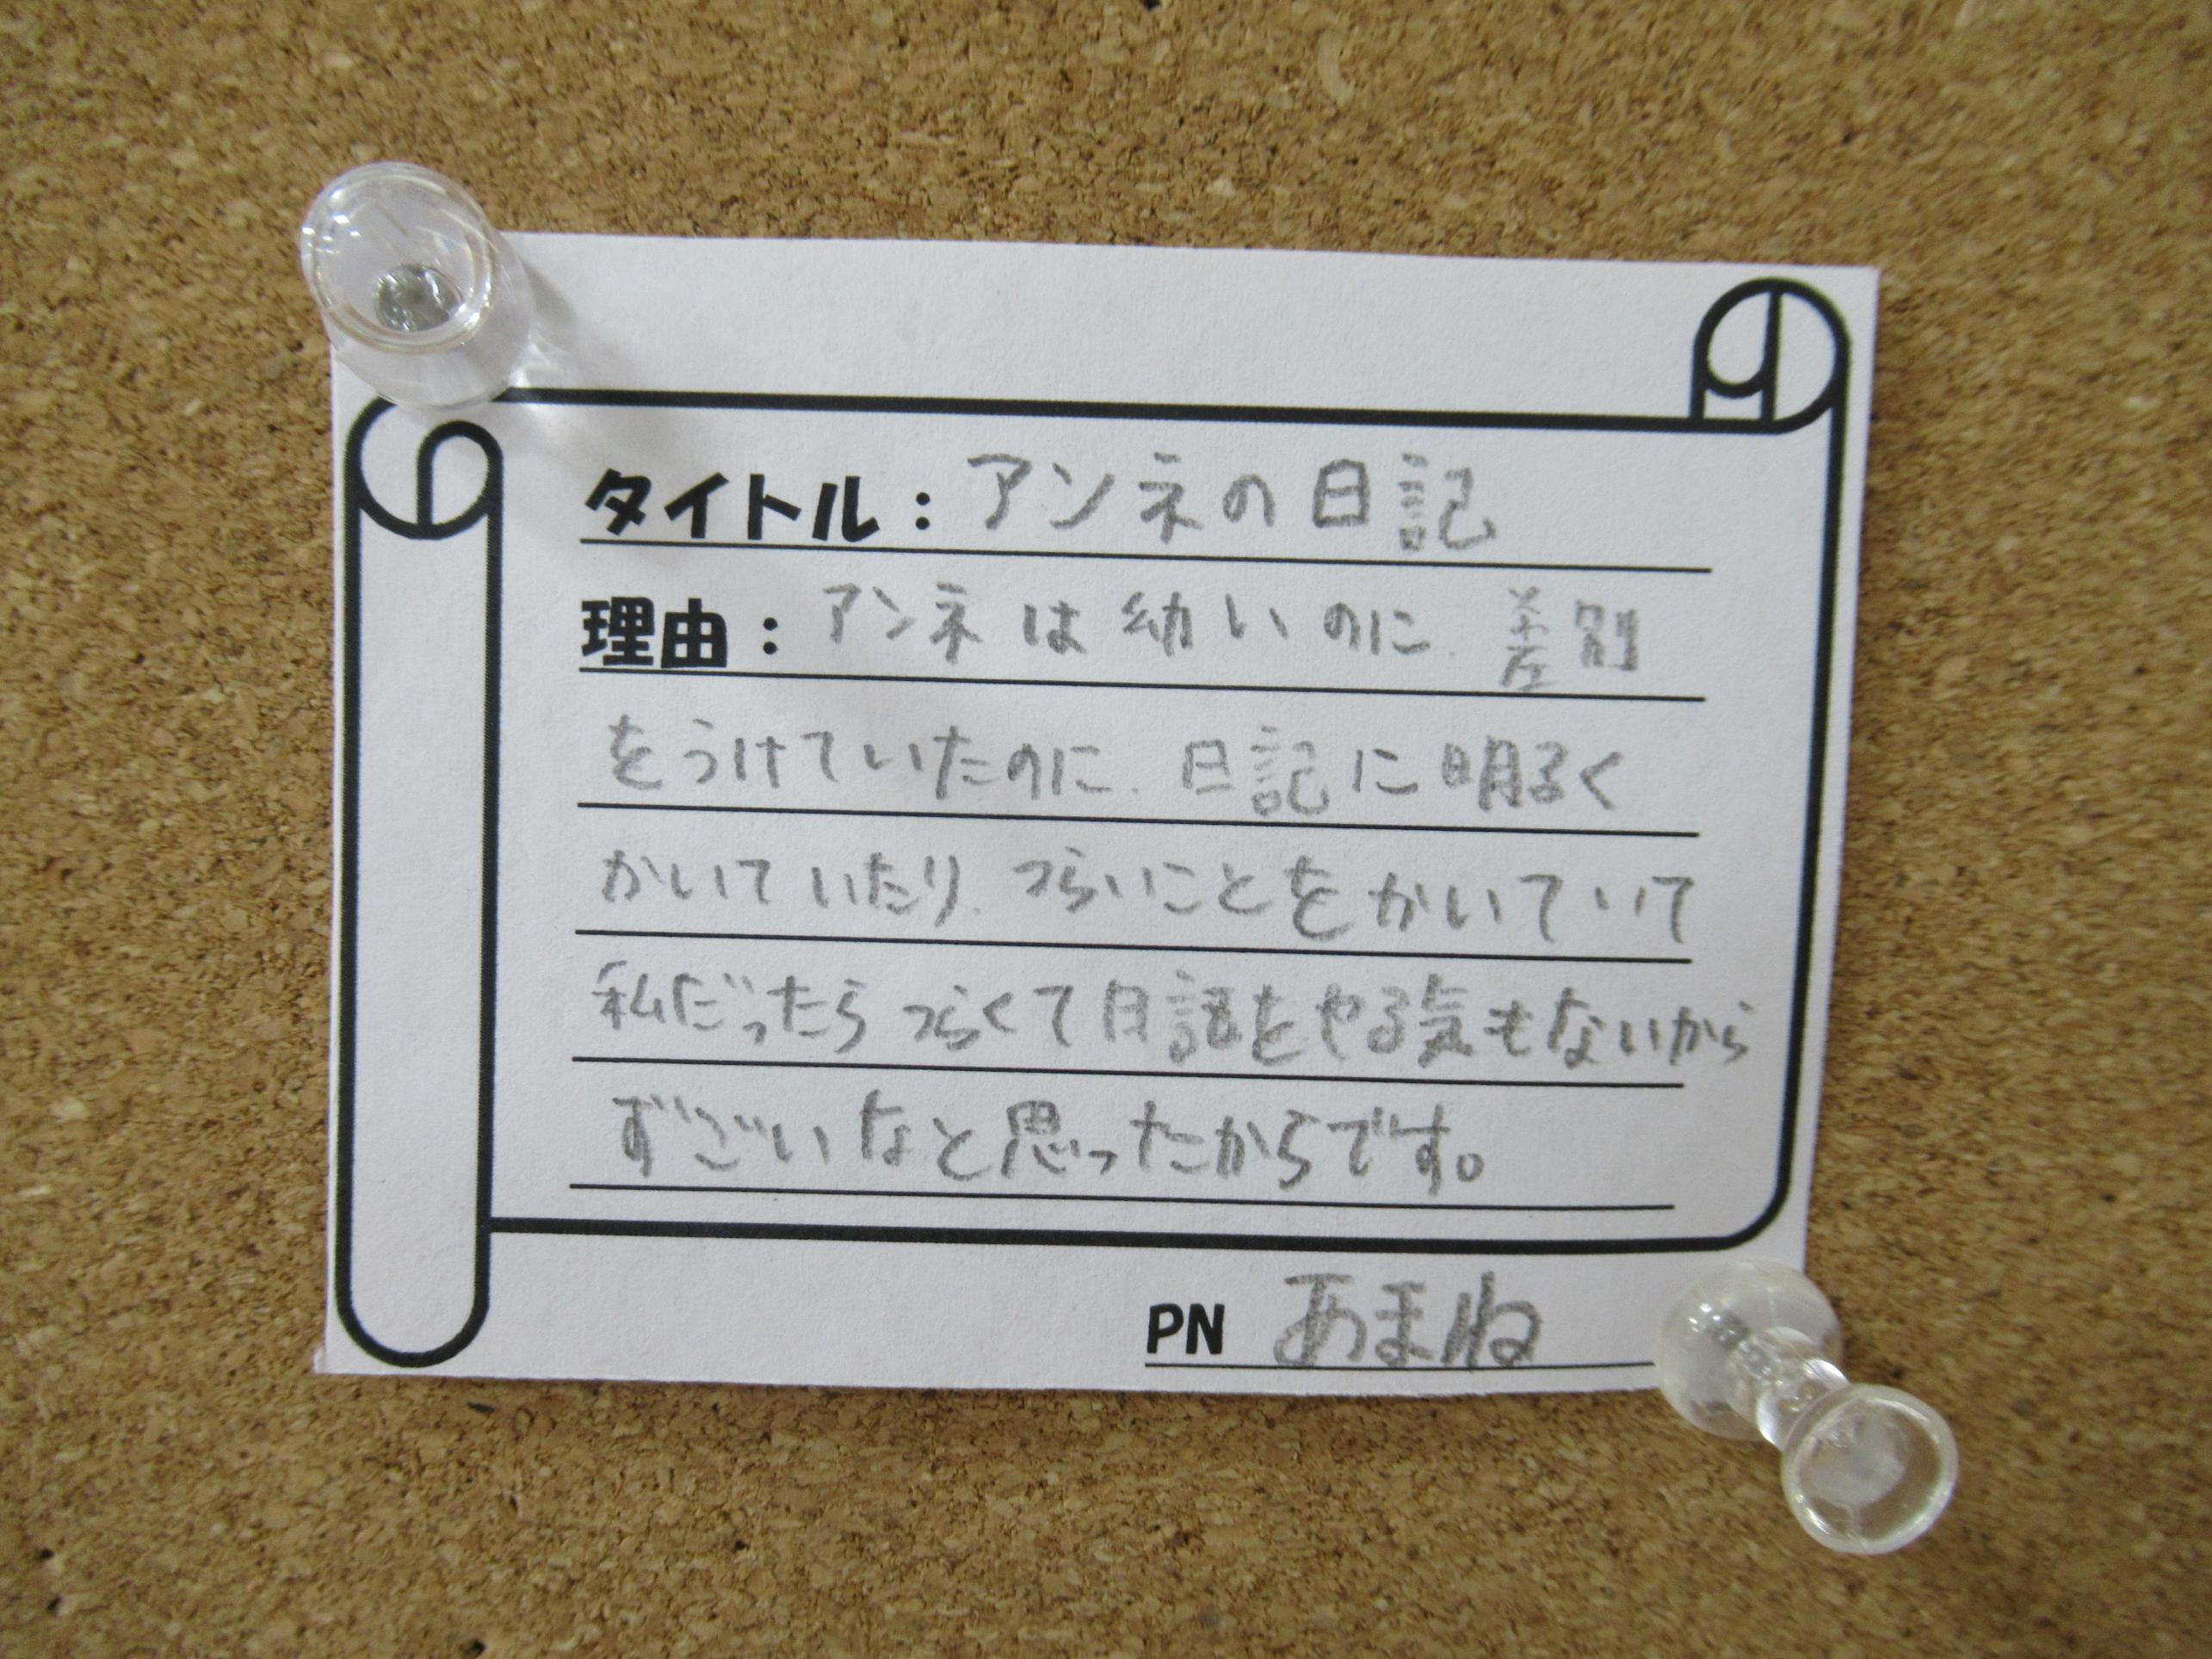 タイトル：アンネの日記
理由：アンネは幼いのに、差別
をうけていたのに、日記に明るく
かいていたり、つらいことをかいていて
私だったらつらくて日記をやる気もないから
ずごいなと思ったからです。
PN あまね